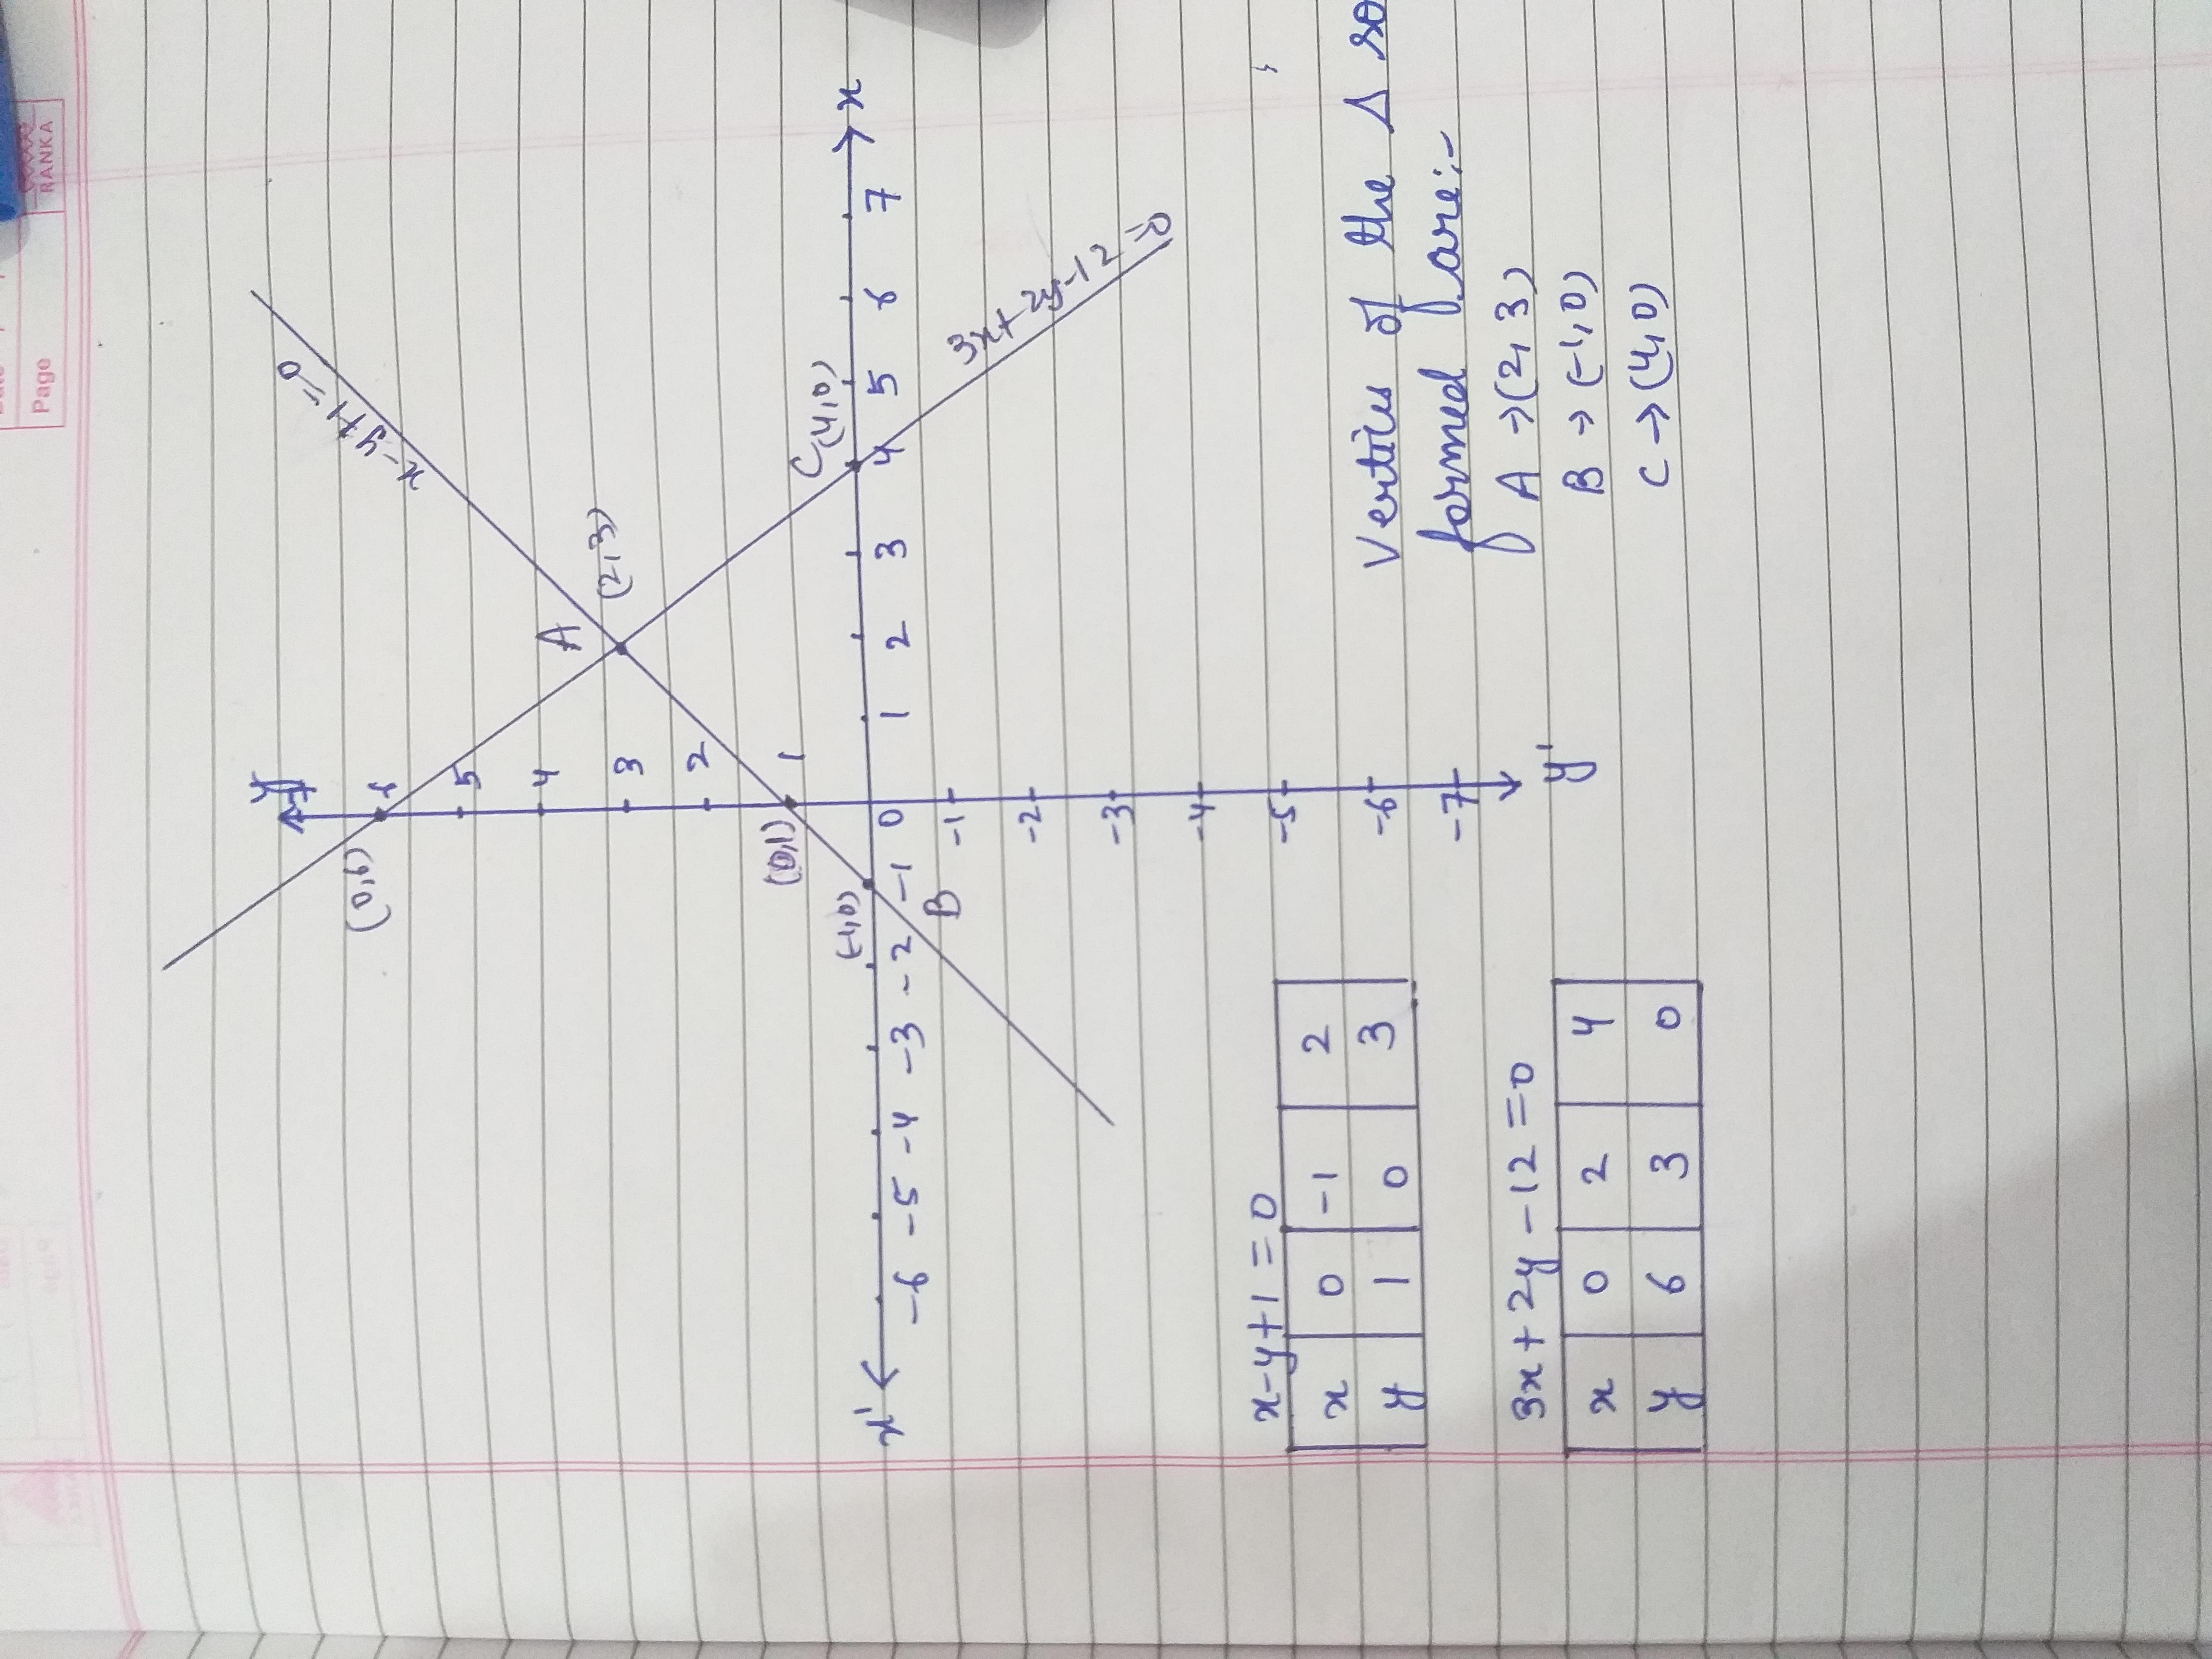 Page
RANKA
y
7
6
5
4
3
2
1
(0,6)
A
(2,3)
x-y+1=0
(0,1)
(-1,0)
B
C(4,0)
3x+2y-12=0
x' -6 -5 -4 -3 -2 -1 0 1 2 3 4 5 6 7 x
-1
-2
-3
-4
-5
-6
-7
y'
x-y+1=0
x 0 -1 2
y 1 0 3
3x+2y-12=0
x 0 2 4
y 6 3 0
Vertices of the Δ so
formed are:-
A → (2,3)
B → (-1,0)
C → (4,0)